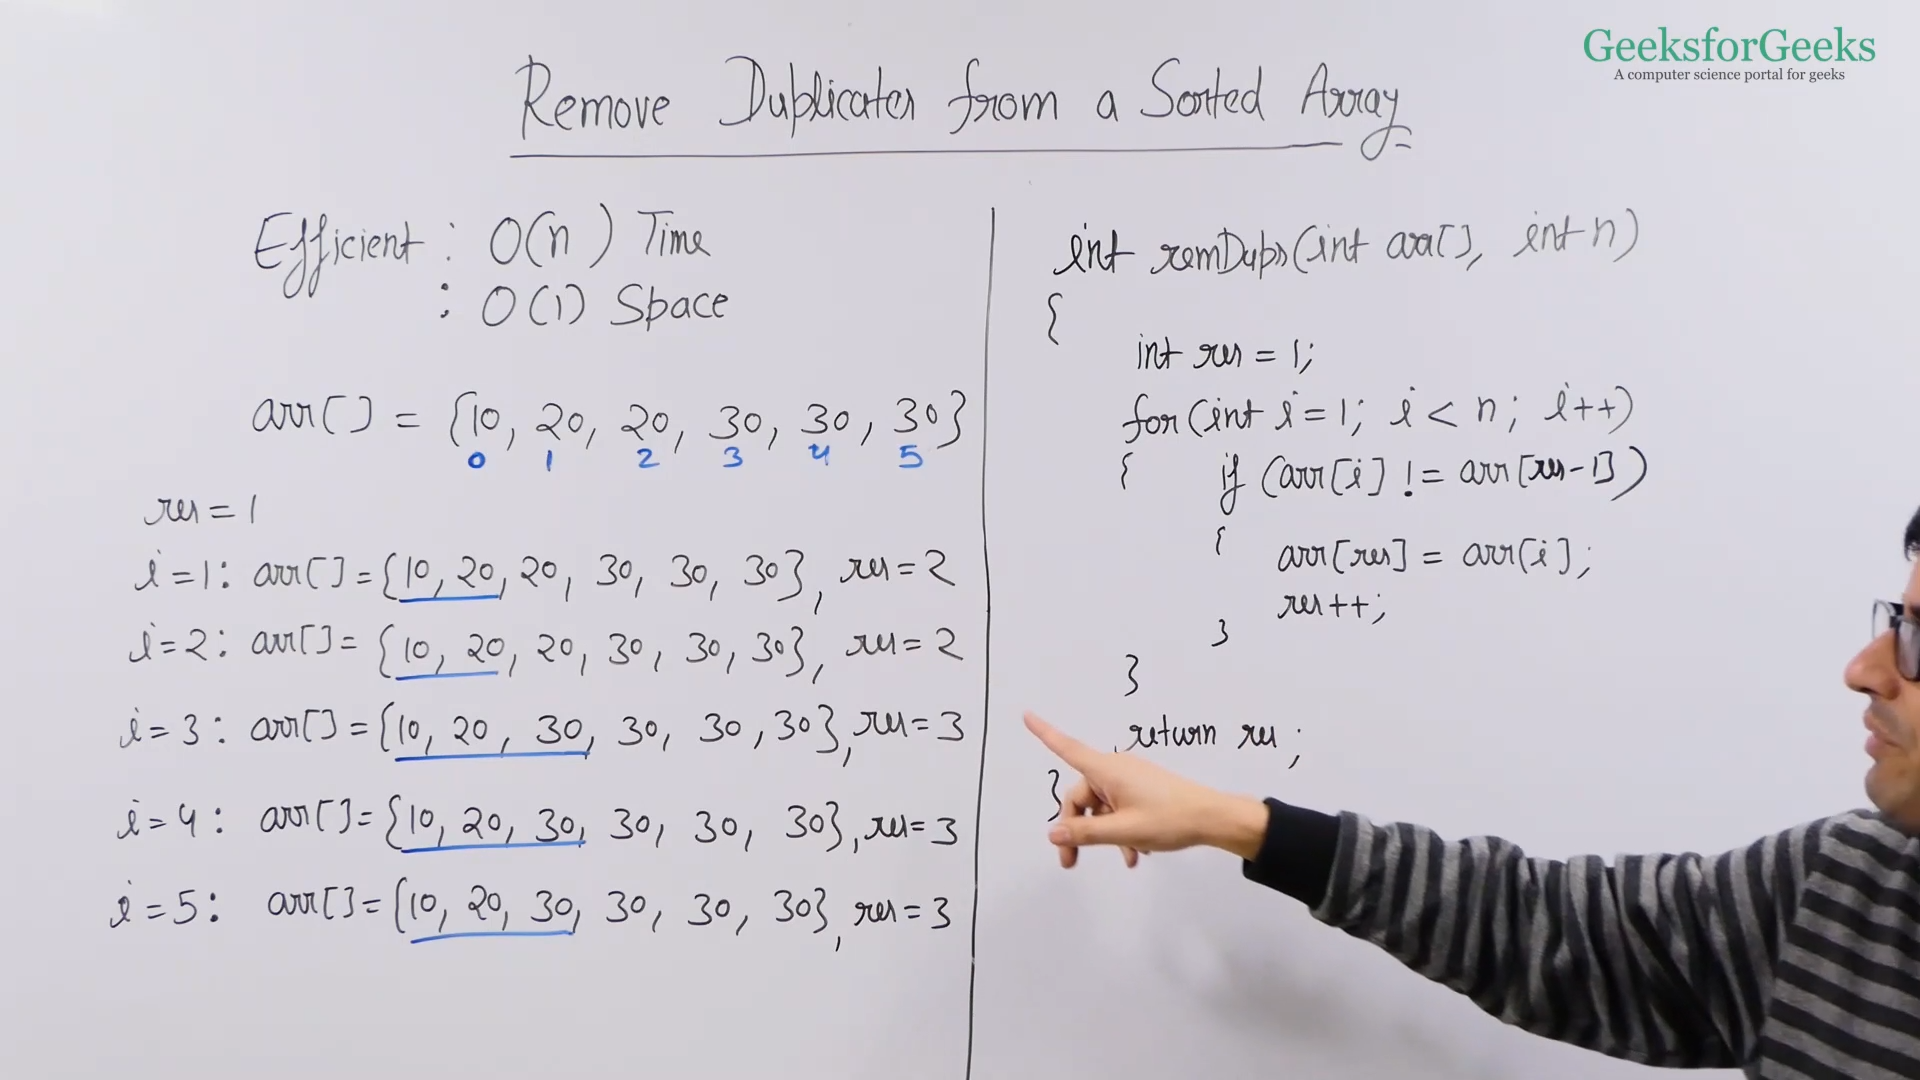 GeeksforGeeks
A computer science portal for geeks
Remove Duplicates from a Sorted Array
Efficient : O(n) Time
: O(1) Space
arr[] = {10, 20, 20, 30, 30, 30}
0 1 2 3 4 5
res = 1
i=1: arr[] = {10, 20, 20, 30, 30, 30}, res = 2
i=2: arr[] = {10, 20, 20, 30, 30, 30}, res = 2
i=3: arr[] = {10, 20, 30, 30, 30, 30}, res = 3
i=4: arr[] = {10, 20, 30, 30, 30, 30}, res = 3
i=5: arr[] = {10, 20, 30, 30, 30, 30}, res = 3
int remDups(int arr[], int n)
{
int res = 1;
for(int i=1; i < n; i++)
{ if (arr[i] != arr[res-1])
{ arr[res] = arr[i];
res++;
}
}
return res;
}